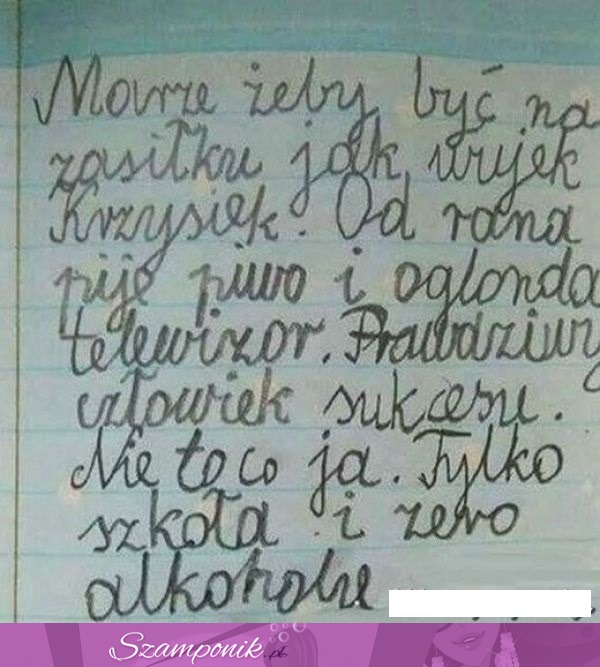 Marze żeby być na
zasiłku jak wujek
Krzysiek. Od rana
pije piwo i oglonda
telewizor. Prawdziwy
człowiek sukcesu.
Nie to co ja. Tylko
szkoła i zero
alkoholu
Szamponik.pl